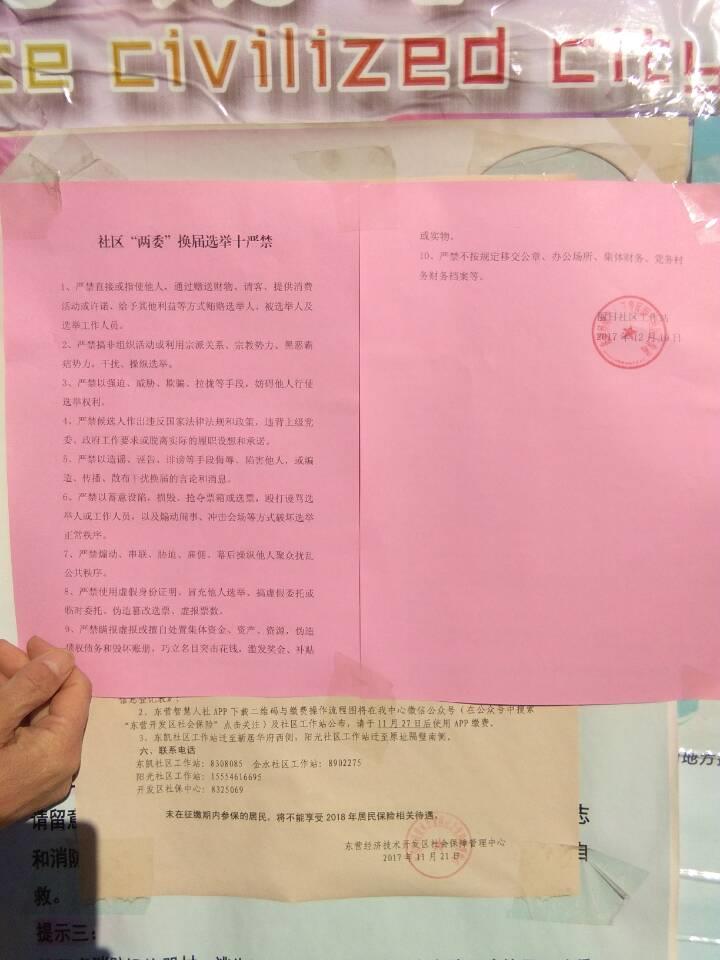 ce civilized city
社区“两委”换届选举十严禁
1、严禁直接或指使他人，通过赠送财物、请客、提供消费
活动或许诺、给予其他利益等方式贿赂选举人、被选举人及
选举工作人员。
2、严禁搞非组织活动或利用宗派关系、宗教势力、黑恶霸
痞势力，干扰、操纵选举。
3、严禁以强迫、威胁、欺骗、拉拢等手段，妨碍他人行使
选举权利。
4、严禁候选人作出违反国家法律法规和政策，违背上级党
委、政府工作要求或脱离实际的履职设想和承诺。
5、严禁以造谣、诬告、诽谤等手段侮辱、陷害他人，或编
造、传播、散布干扰换届的言论和消息。
6、严禁以蓄意设陷，损毁、抢夺票箱或选票，殴打谩骂选
举人或工作人员，以及煽动闹事、冲击会场等方式破坏选举
正常秩序。
7、严禁煽动、串联、胁迫、雇佣、幕后操纵他人聚众扰乱
公共秩序。
8、严禁使用虚假身份证明，冒充他人选举、搞虚假委托或
临时委托，伪造篡改选票、虚报票数。
9、严禁瞒报虚报或擅自处置集体资金、资产、资源，伪造
债权债务和毁坏账册，巧立名目突击花钱，滥发奖金、补贴
或实物。
10、严禁不按规定移交公章、办公场所、集体财务、党务村
务财务档案等。
社区工作站
2017年12月19日
2、东营智慧人社APP下载二维码与缴费操作流程图将在我中心微信公众号（在公众号中搜索
“东营开发区社会保险”点击关注）及社区工作站公布，请于11月27日后使用APP缴费。
3、东凯社区工作站迁至新居华府西侧，阳光社区工作站迁至原址隔壁南侧。
六、联系电话
东凯社区工作站：8308085 金水社区工作站：8902275
阳光社区工作站：15554616695
开发区社保中心：8325069
未在征缴期内参保的居民，将不能享受2018年居民保险相关待遇。
东营经济技术开发区社会保障管理中心
2017年11月21日
地方
请留意
志
和消防
自
救。
提示三：